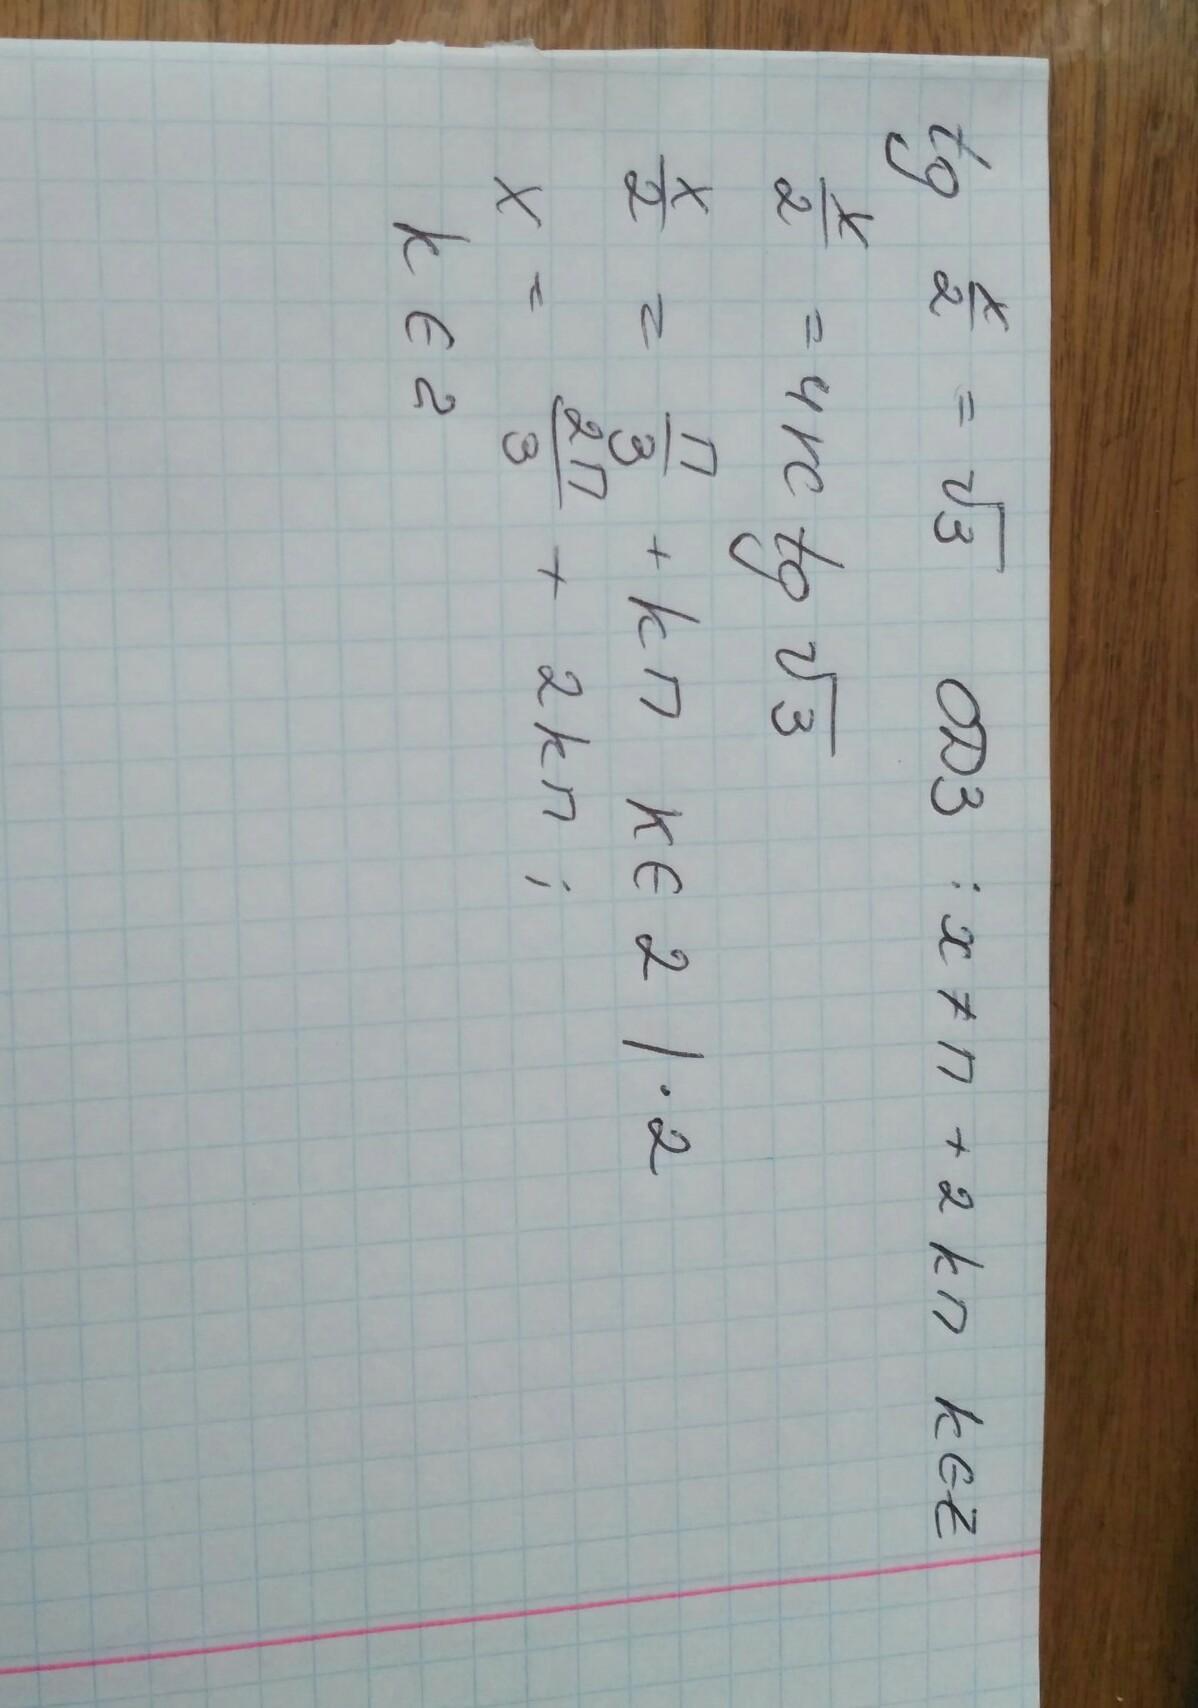 tg x/2 = √3 ОДЗ : x ≠ π + 2kπ k∈Z
x/2 = arctg √3
x/2 = π/3 + kπ k∈Z |·2
x = 2π/3 + 2kπ ;
k∈Z